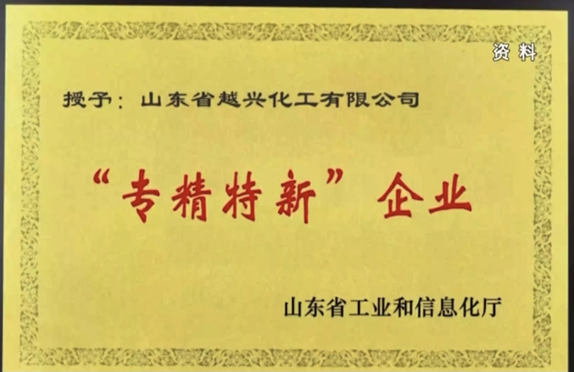 资料
授予：山东省越兴化工有限公司
“专精特新”企业
山东省工业和信息化厅